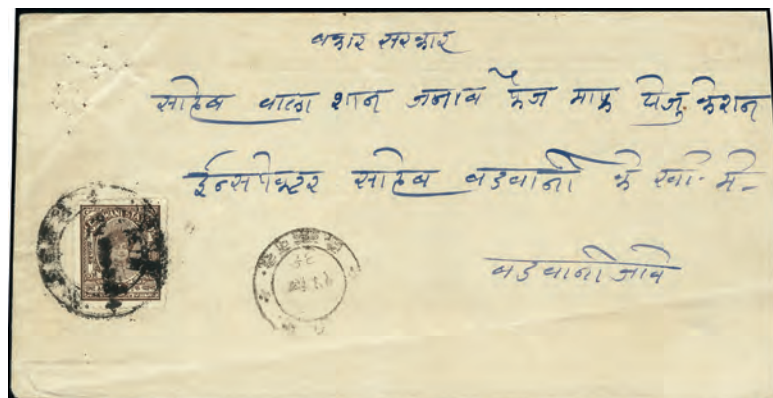 बकार सरकार
साहेब वाला शान जनाब फैज माब येजुकेशन
ईन्सपेक्टर साहेब बडवानी के खी. मे.
बडवानी जावे